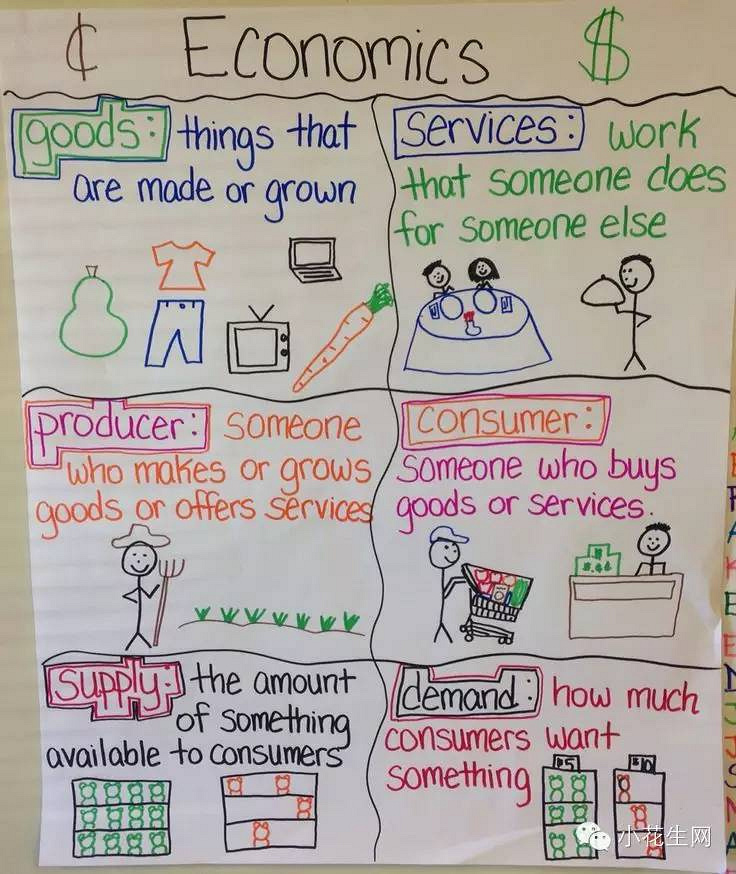 ¢ Economics $
goods: things that
are made or grown
services: work
that someone does
for someone else
producer: someone
who makes or grows
goods or offers services
consumer:
someone who buys
goods or services.
supply: the amount
of something
available to consumers
demand: how much
consumers want
something
$5
$10
小花生网